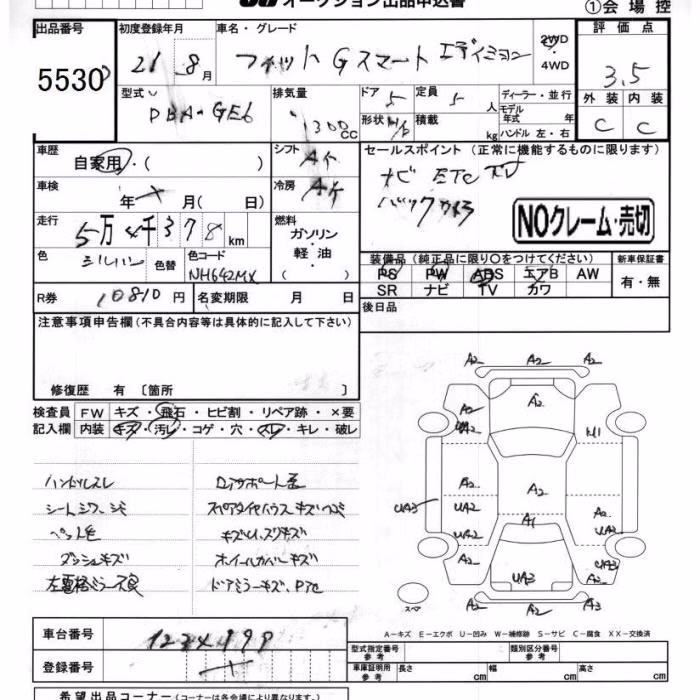 オークション出品申込書
①会場控
出品番号
5530
初度登録年月
21年8月
車名・グレード
フィットGスマートエディション
2WD
4WD
評価点
3.5
外装 内装
C C
型式
DBA-GE6
排気量
1300cc
ドア 5
定員 5人
形状 H/B
積載 kg
ディーラー・並行
モデル年式 年
ハンドル 左・右
車歴
自家用・( )
シフト AT
車検
年 月(日)
冷房 AC
セールスポイント (正常に機能するものに限ります)
ナビ ETC TV
バックカメラ
NOクレーム・売切
走行
5万4千378km
燃料
ガソリン・軽油・( )
色
シルバー
色替
色コード
NH642MX
装備品 (純正品に限り○をつけてください)
PS PW ABS エアB AW
SR ナビ TV カワ
新車保証書
有・無
R券
10810円
名変期限 月 日
後日品
注意事項申告欄 (不具合内容等は具体的に記入して下さい)
修復歴 有 〔箇所 〕
検査員記入欄
FW キズ・飛石・ヒビ割・リペア跡・×要
内装 キズ・汚レ・コゲ・穴・スレ・キレ・破レ
ハンドルスレ
シートシワ、シミ
ペット毛
ダッシュキズ
左電格ミラー不良
ロアサポート歪
スペアタイヤハウスキズヘコミ
キズU、スリキズ
ホイールカバーキズ
ドアミラーキズ、Pアセ
A2 A2 A2
A2 A2
UA2 W1
A2
UA3 UA2 A2 A2
UA2 A1 UA2
A2 UA3 A2
A2 A2 A3
スペア
A-キズ E-エクボ U-凹み W-補修跡 S-サビ C-腐食 XX-交換済
車台番号
1234999
登録番号
型式指定番号 参考
類別区分番号 参考
車庫証明用 参考
長さ cm 幅 cm 高さ cm
希望出品コーナー (コーナーは各会場により異なります)